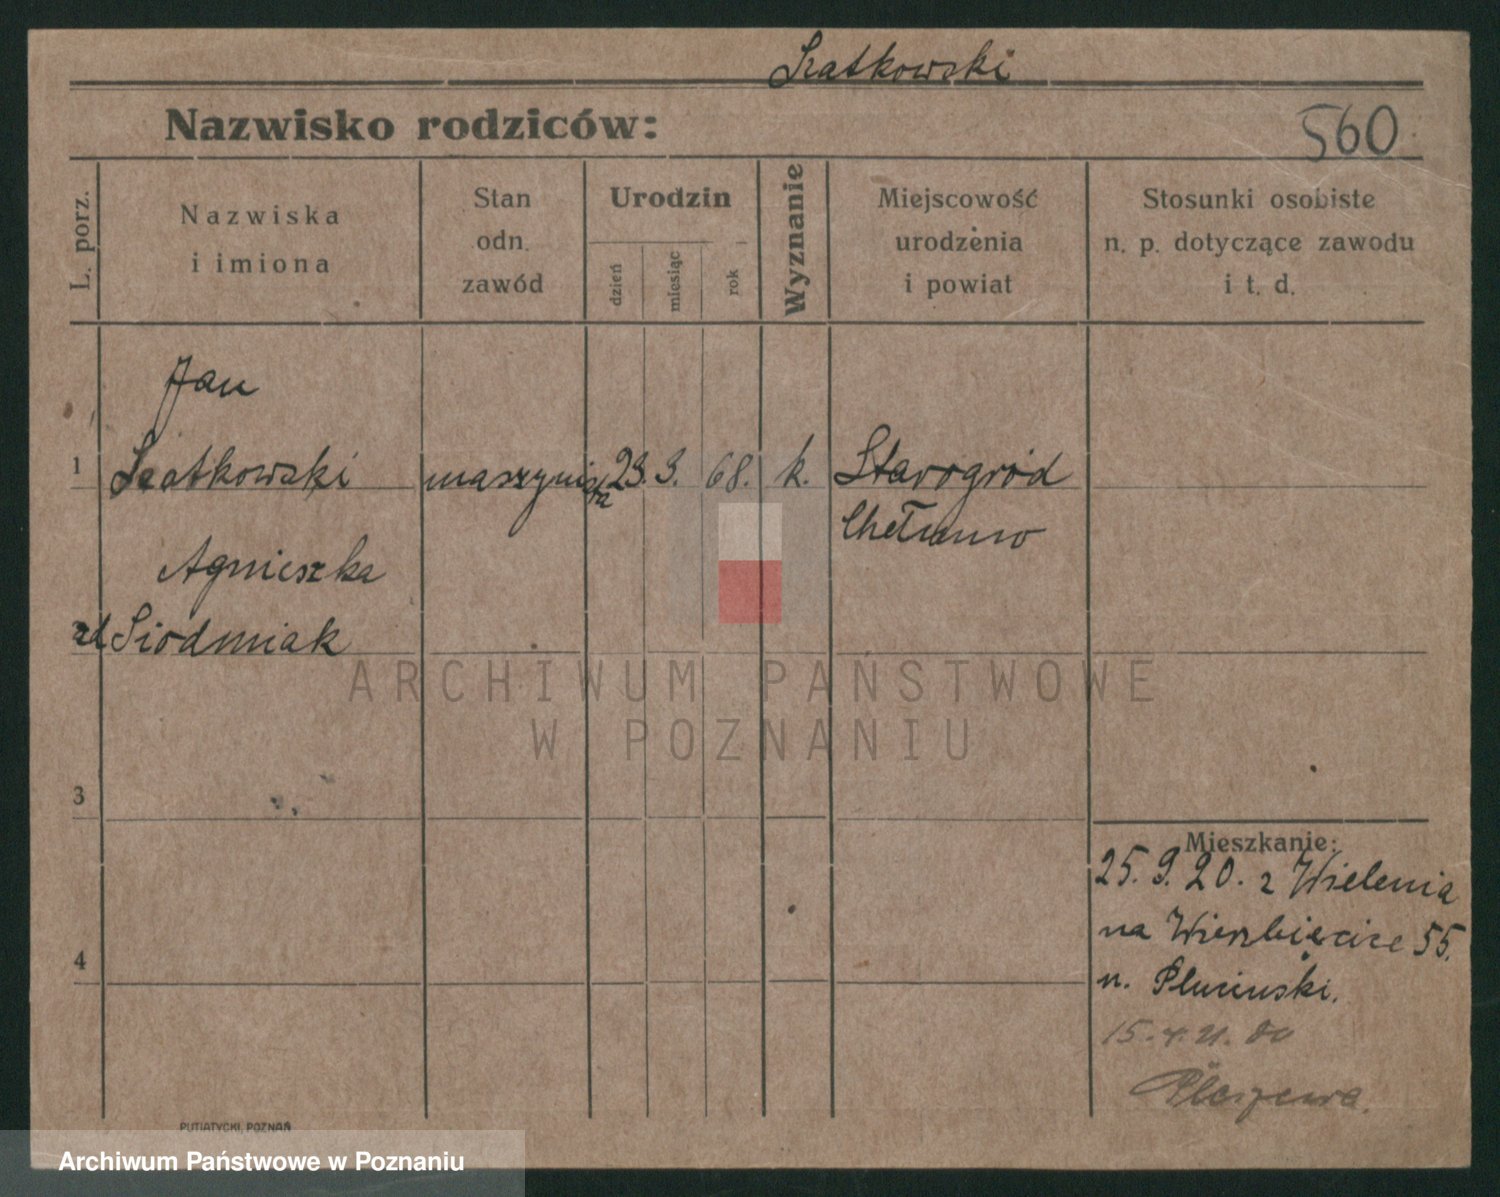 Szatkowski
Nazwisko rodziców:
560
L. porz.
Nazwiska
i imiona
Stan
odn.
zawód
Urodzin
dzień
miesiąc
rok
Wyznanie
Miejscowość
urodzenia
i powiat
Stosunki osobiste
n. p. dotyczące zawodu
i t. d.
Jan
1 Szatkowski maszynista 23. 3. 68. k. Starogród
Chełmno
Agnieszka
zd Siodmiak
3
4
Mieszkanie:
25. 9. 20. z Wielenia
na Wierzbięcice 55.
u. Pluciński.
15. 4. 21. do
Pleszewa.
PUTIATYCKI, POZNAŃ
ARCHIWUM PAŃSTWOWE
W POZNANIU
Archiwum Państwowe w Poznaniu